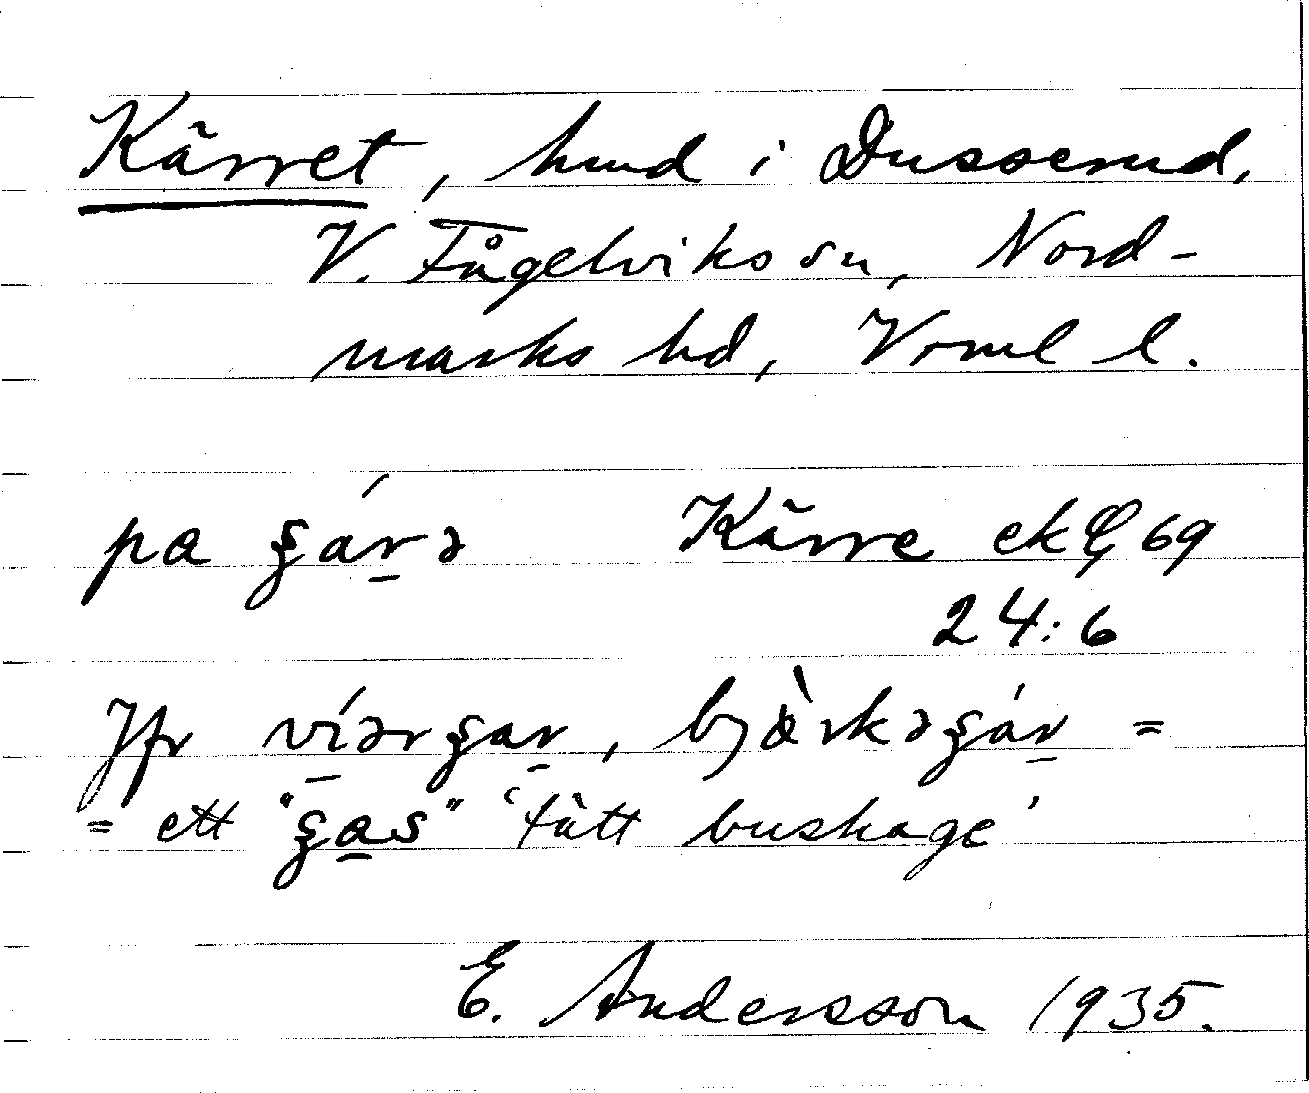 Kärret, hmd i Dusserud,
V. Fågelviks sn, Nord-
marks hd, Vrml l.
pa ʂárə Kärre ek G 69
24:6
Jfr víərʂar, bjæ̀rkəʂár =
= ett "ʂas" 'tätt buskage'
E. Andersson 1935.